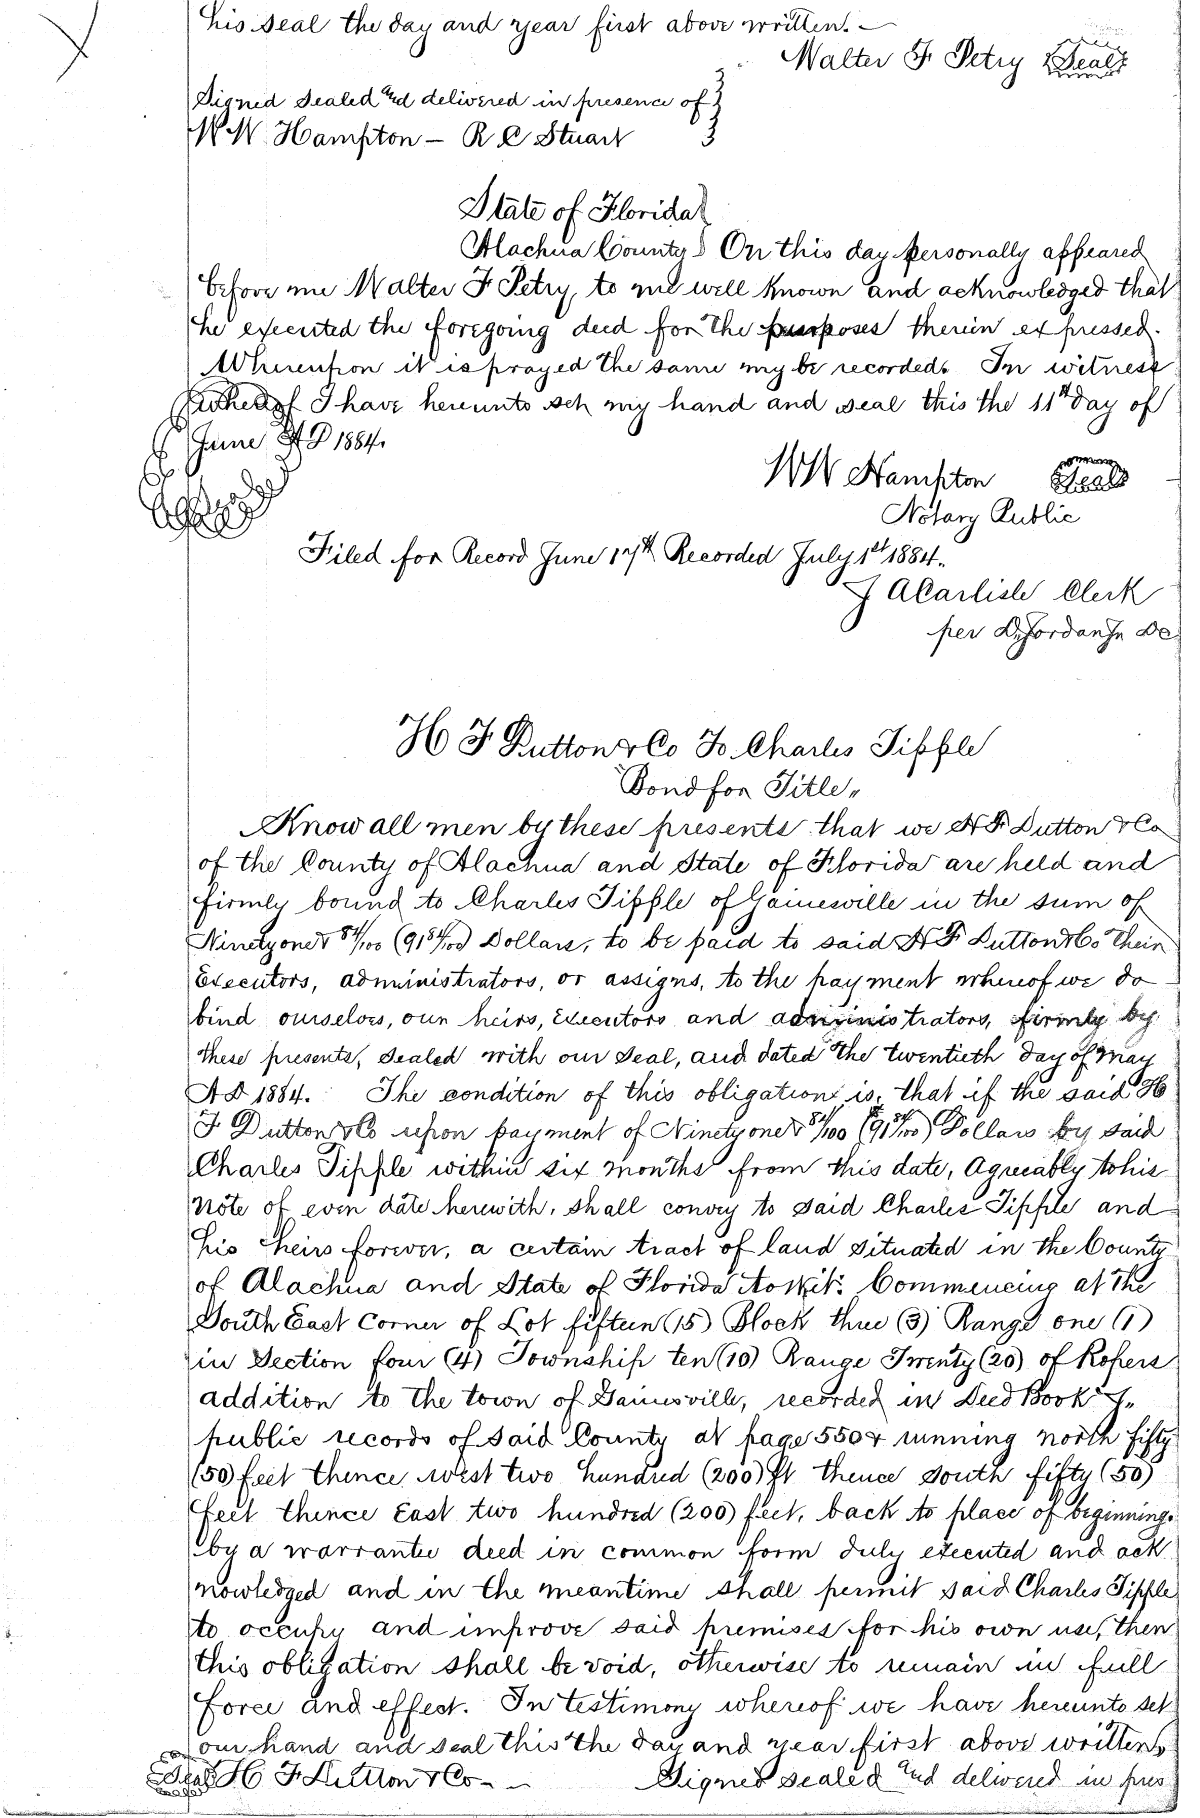 his seal the day and year first above written. —
Walter F Petry Seal
Signed sealed and delivered in presence of
W W Hampton — R C Stuart
State of Florida
Alachua County On this day personally appeared
before me Walter F Petry, to me well known and acknowledged that
he executed the foregoing deed for the purposes therein expressed.
Whereupon it is prayed the same my be recorded. In witness
whereof I have hereunto set my hand and seal this the 11th day of
June A D 1884.
W W Hampton Seal
Notary Public
Filed for Record June 17th Recorded July 1st 1884.
J A Carlisle Clerk
per D. Jordan Jr DC
H F Dutton & Co To Charles Tipple
Bond for Title,,
Know all men by these presents that we H F Dutton & Co
of the County of Alachua and State of Florida are held and
firmly bound to Charles Tipple of Gainesville in the sum of
Ninety one & 84/100 (91 84/100) Dollars, to be paid to said H F Dutton & Co their
Executors, administrators, or assigns, to the payment whereof we do
bind ourselves, our heirs, Executors and administrators, firmly by
these presents, sealed with our seal, and dated the twentieth day of May
A D 1884. The condition of this obligation is, that if the said H
F Dutton & Co upon payment of Ninety one & 84/100 (91 84/100) Dollars by said
Charles Tipple within six months from this date, Agreeably to his
Note of even date herewith, shall convey to said Charles Tipple and
his heirs forever, a certain tract of land situated in the County
of Alachua and State of Florida to wit: Commencing at the
South East Corner of Lot fifteen (15) Block three (3) Range one (1)
in Section four (4) Township ten (10) Range Twenty (20) of Ropers
addition to the town of Gainesville, recorded in Deed Book
public records of said County at page 550 & running north fifty
(50) feet thence west two hundred (200) ft thence south fifty (50)
feet thence East two hundred (200) feet, back to place of beginning.
by a warrantee deed in common form duly executed and ack
nowledged and in the meantime shall permit said Charles Tipple
to occupy and improve said premises for his own use, then
this obligation shall be void, otherwise to remain in full
force and effect. In testimony whereof we have hereunto set
our hand and seal this the day and year first above written.
Seal H F Dutton & Co — Signed sealed and delivered in pres